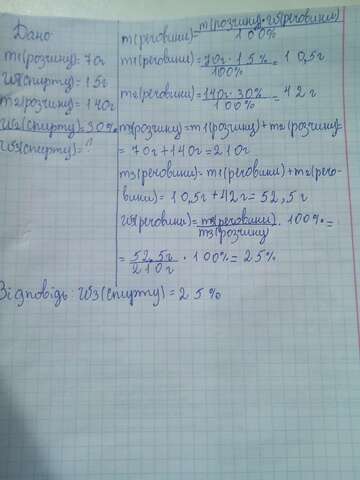 Дано:
m1(розчину)=70г
W1(спирту)=15г
m2(розчину)=140г
W2(спирту)=30%
W3(спирту)=?
m(речовини)=m(розчину)·W(речовини)/100%
m1(речовини)=70г·15%/100%=10,5г
m2(речовини)=140г·30%/100%=42г
m3(розчину)=m1(розчину)+m2(розчину)=
=70г+140г=210г
m3(речовини)=m1(речовини)+m2(речо-
вини)=10,5г+42г=52,5г
W3(речовини)=m3(речовини)/m3(розчину)·100%=
=52,5г/210г·100%=25%
Відповідь: W3(спирту)=25%